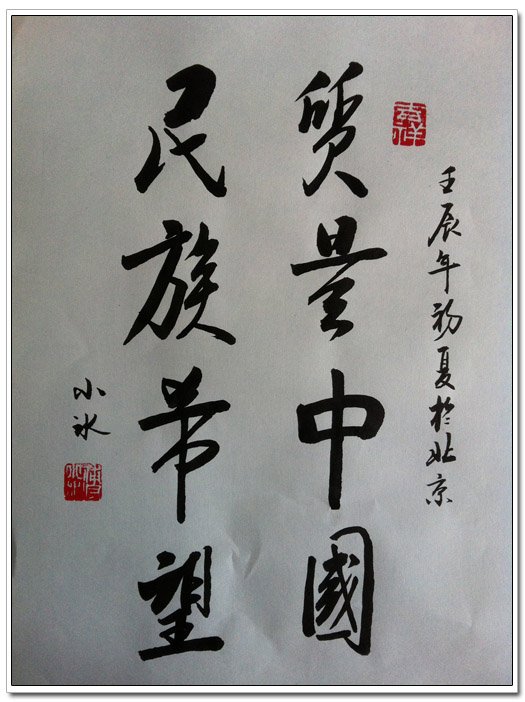 壬辰年初夏於北京
質量中國
民族希望
小冰